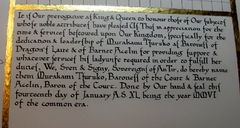 It is Our prerogative as King & Queen to honour those of Our subjects
whose noble atributes have pleased Us. Thus in appreciation for the
time & services bestowed upon Our Kingdom, specifically for the
dedication & leadership of Murakami Tsuruko as Baroness of
Dragon's Laire & of Barnet Acelin for providing support &
whatever service his ladywife required in order to fulfill her
duties, We, Sven & Signy, Sovereigns of AnTir, do hereby name
them Murakami Tsuruko, Baroness of the Court & Barnet
Acelin, Baron of the Court. Done by Our hand & seal this
fourteenth day of January A.S. XL being the year MMVI
of the common era.